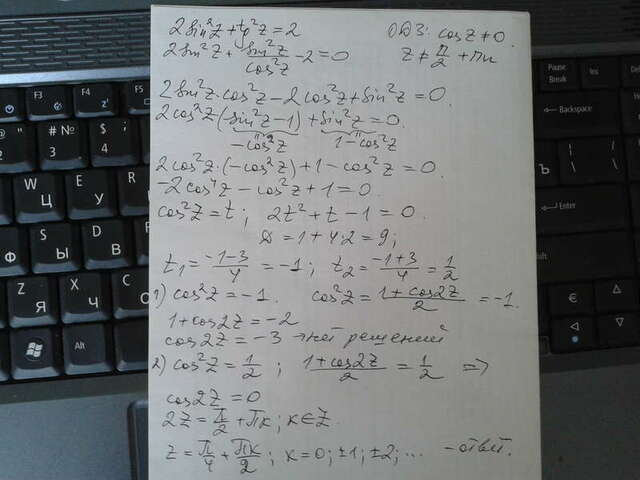 2sin²z + tg²z = 2 ОДЗ: cos z ≠ 0.
2sin²z + sin²z/cos²z − 2 = 0 z ≠ π/2 + πn
2sin²z·cos²z − 2cos²z + sin²z = 0.
2cos²z(sin²z − 1) + sin²z = 0.
−cos²z 1 − cos²z
2cos²z·(−cos²z) + 1 − cos²z = 0.
−2cos⁴z − cos²z + 1 = 0.
cos²z = t; 2t² + t − 1 = 0.
D = 1 + 4·2 = 9;
t₁ = (−1−3)/4 = −1; t₂ = (−1+3)/4 = 1/2
1) cos²z = −1. cos²z = (1 + cos2z)/2 = −1.
1 + cos2z = −2
cos2z = −3 нет решений
2) cos²z = 1/2; (1 + cos2z)/2 = 1/2 ⇒
cos2z = 0
2z = π/2 + πk; k ∈ Z.
z = π/4 + πk/2; k = 0; ±1; ±2; ... − ответ.
@ 2 "
# № 3
$ ; 4
W Ц
E У
S
D
Ф
Я
X Ч
C С
Alt
Pause Break
Ins
Delete
Backspace
Ъ
Enter
€